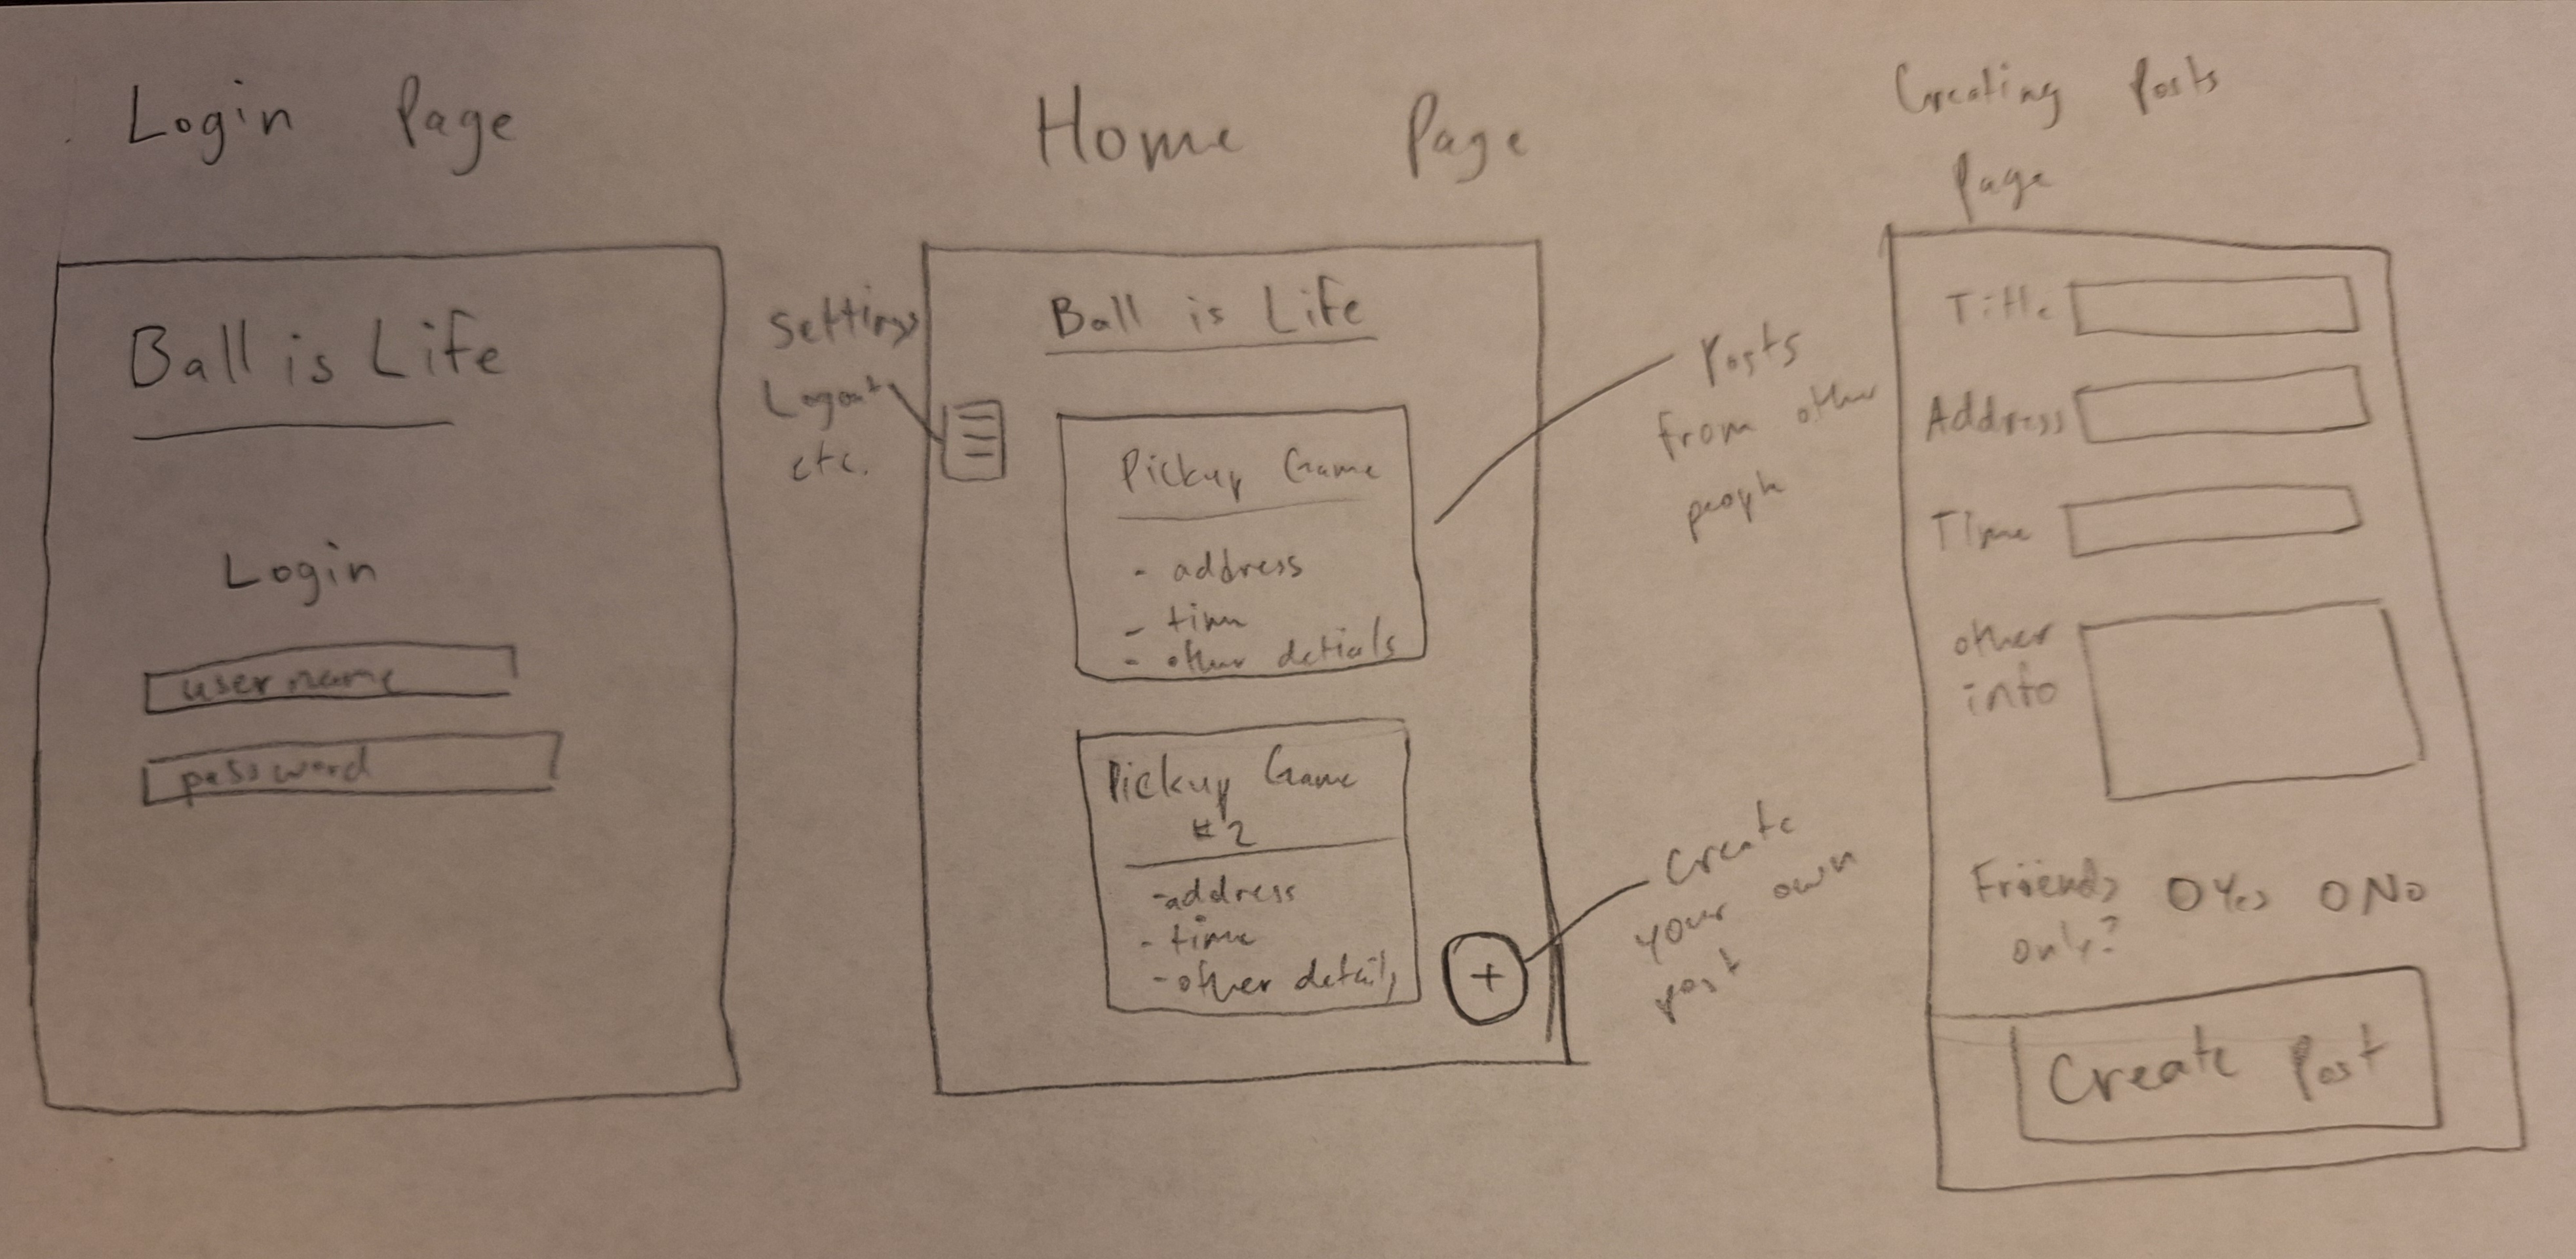 Login Page
Ball is Life
Login
username
password
Home Page
Settings
Logout
etc.
Ball is Life
Pickup Game
- address
- time
- other detials
Pickup Game
#2
- address
- time
- other details
+
Posts
from other
people
Create
your own
post
Creating Posts
Page
Title
Address
Time
other
info
Friends
only?
Yes
No
Create Post